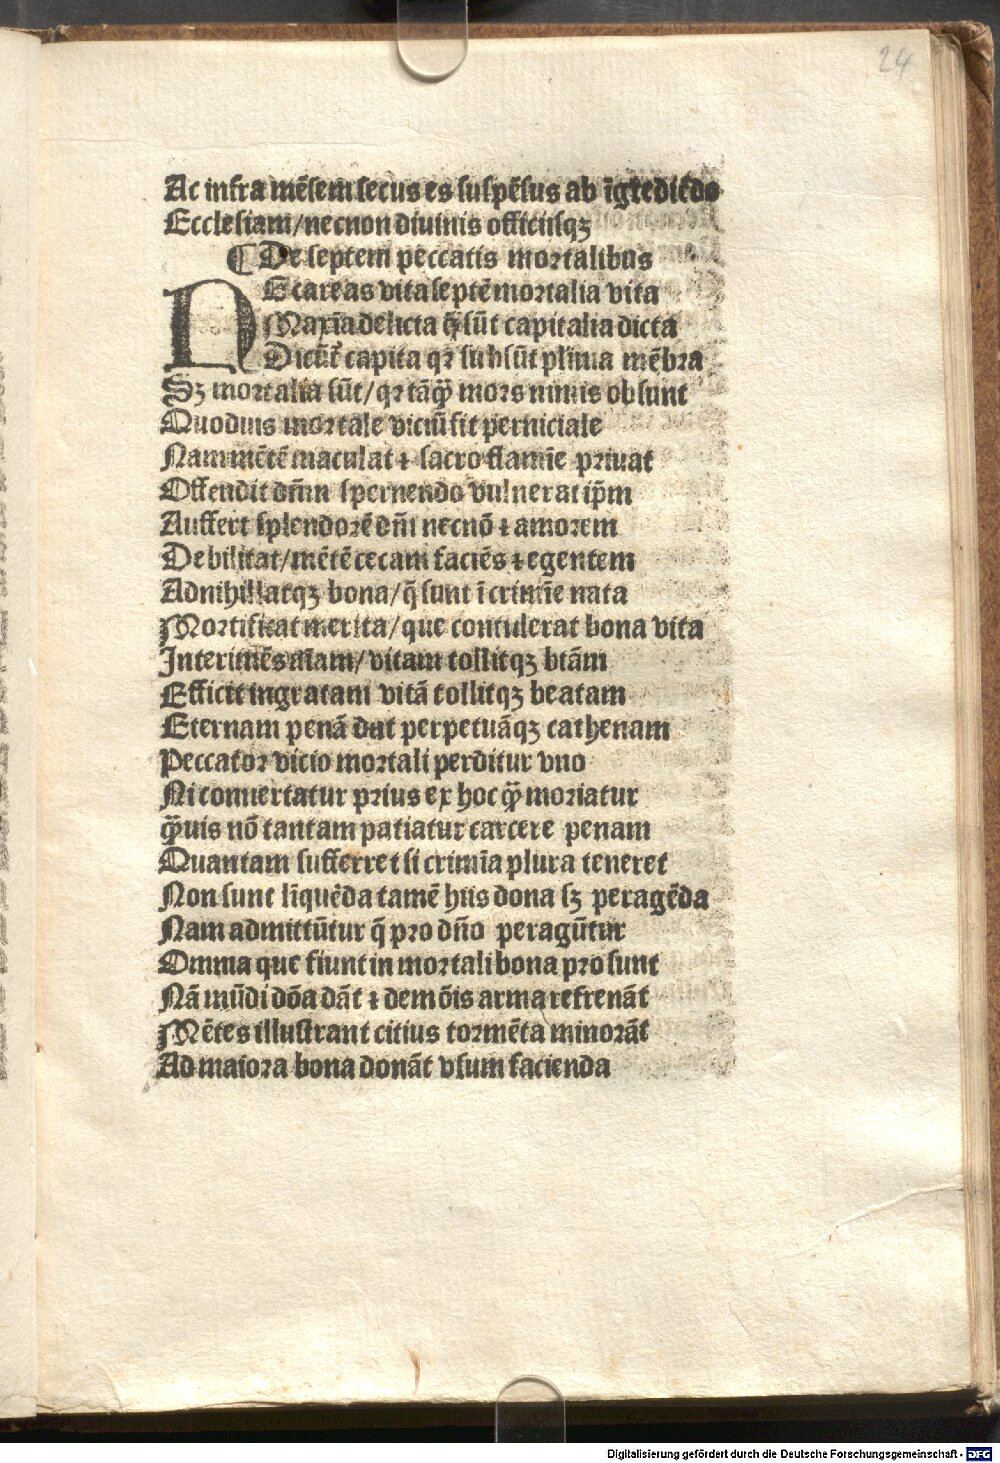 24
Ac infra mēsem secus es suspēsus ab īgrediēdo
Ecclesiam/necnon diuinis officiisqꝫ
¶ De septem peccatis mortalibus
NEcareas vita septē mortalia vita
Maxīa delicta q̄ sūt capitalia dicta
Dicūt᷑ capita qꝛ subsūt plīma mēbra
Sꝫ mortalia sūt/qꝛ tāꝙ̄ mors nimis obsunt
Quoduis mortale viciū fit perniciale
Nam mētē maculat ⁊ sacro flamīe priuat
Offendit dn̄m spernendo vulnerat ip̄m
Auffert splendorē dn̄i necnō ⁊ amorem
Debilitat/mētē cecam faciēs ⁊ egentem
Adnihillatqꝫ bona/q̄ sunt ī crimīe nata
Mortificat merita/que contulerat bona vita
Interimēs aīam/vitam tollitqꝫ btām
Efficit ingratam vitā tollitqꝫ beatam
Eternam penā dat perpetuāqꝫ cathenam
Peccator vicio mortali perditur vno
Ni conuertatur prius ex hoc ꝙ̄ moriatur
ꝙ̄uis nō tantam patiatur carcere penam
Quantam sufferret si crimīa plura teneret
Non sunt līquēda tamē hiis dona sꝫ peragēda
Nam admittūtur q̄ pro dn̄o peragūtur
Omnia que fiunt in mortali bona prosunt
Nā mūdi dōa dāt ⁊ demōis arma refrenāt
Mētes illustrant citius tormēta minorāt
Ad maiora bona donāt vsum facienda
Digitalisierung gefördert durch die Deutsche Forschungsgemeinschaft - DFG